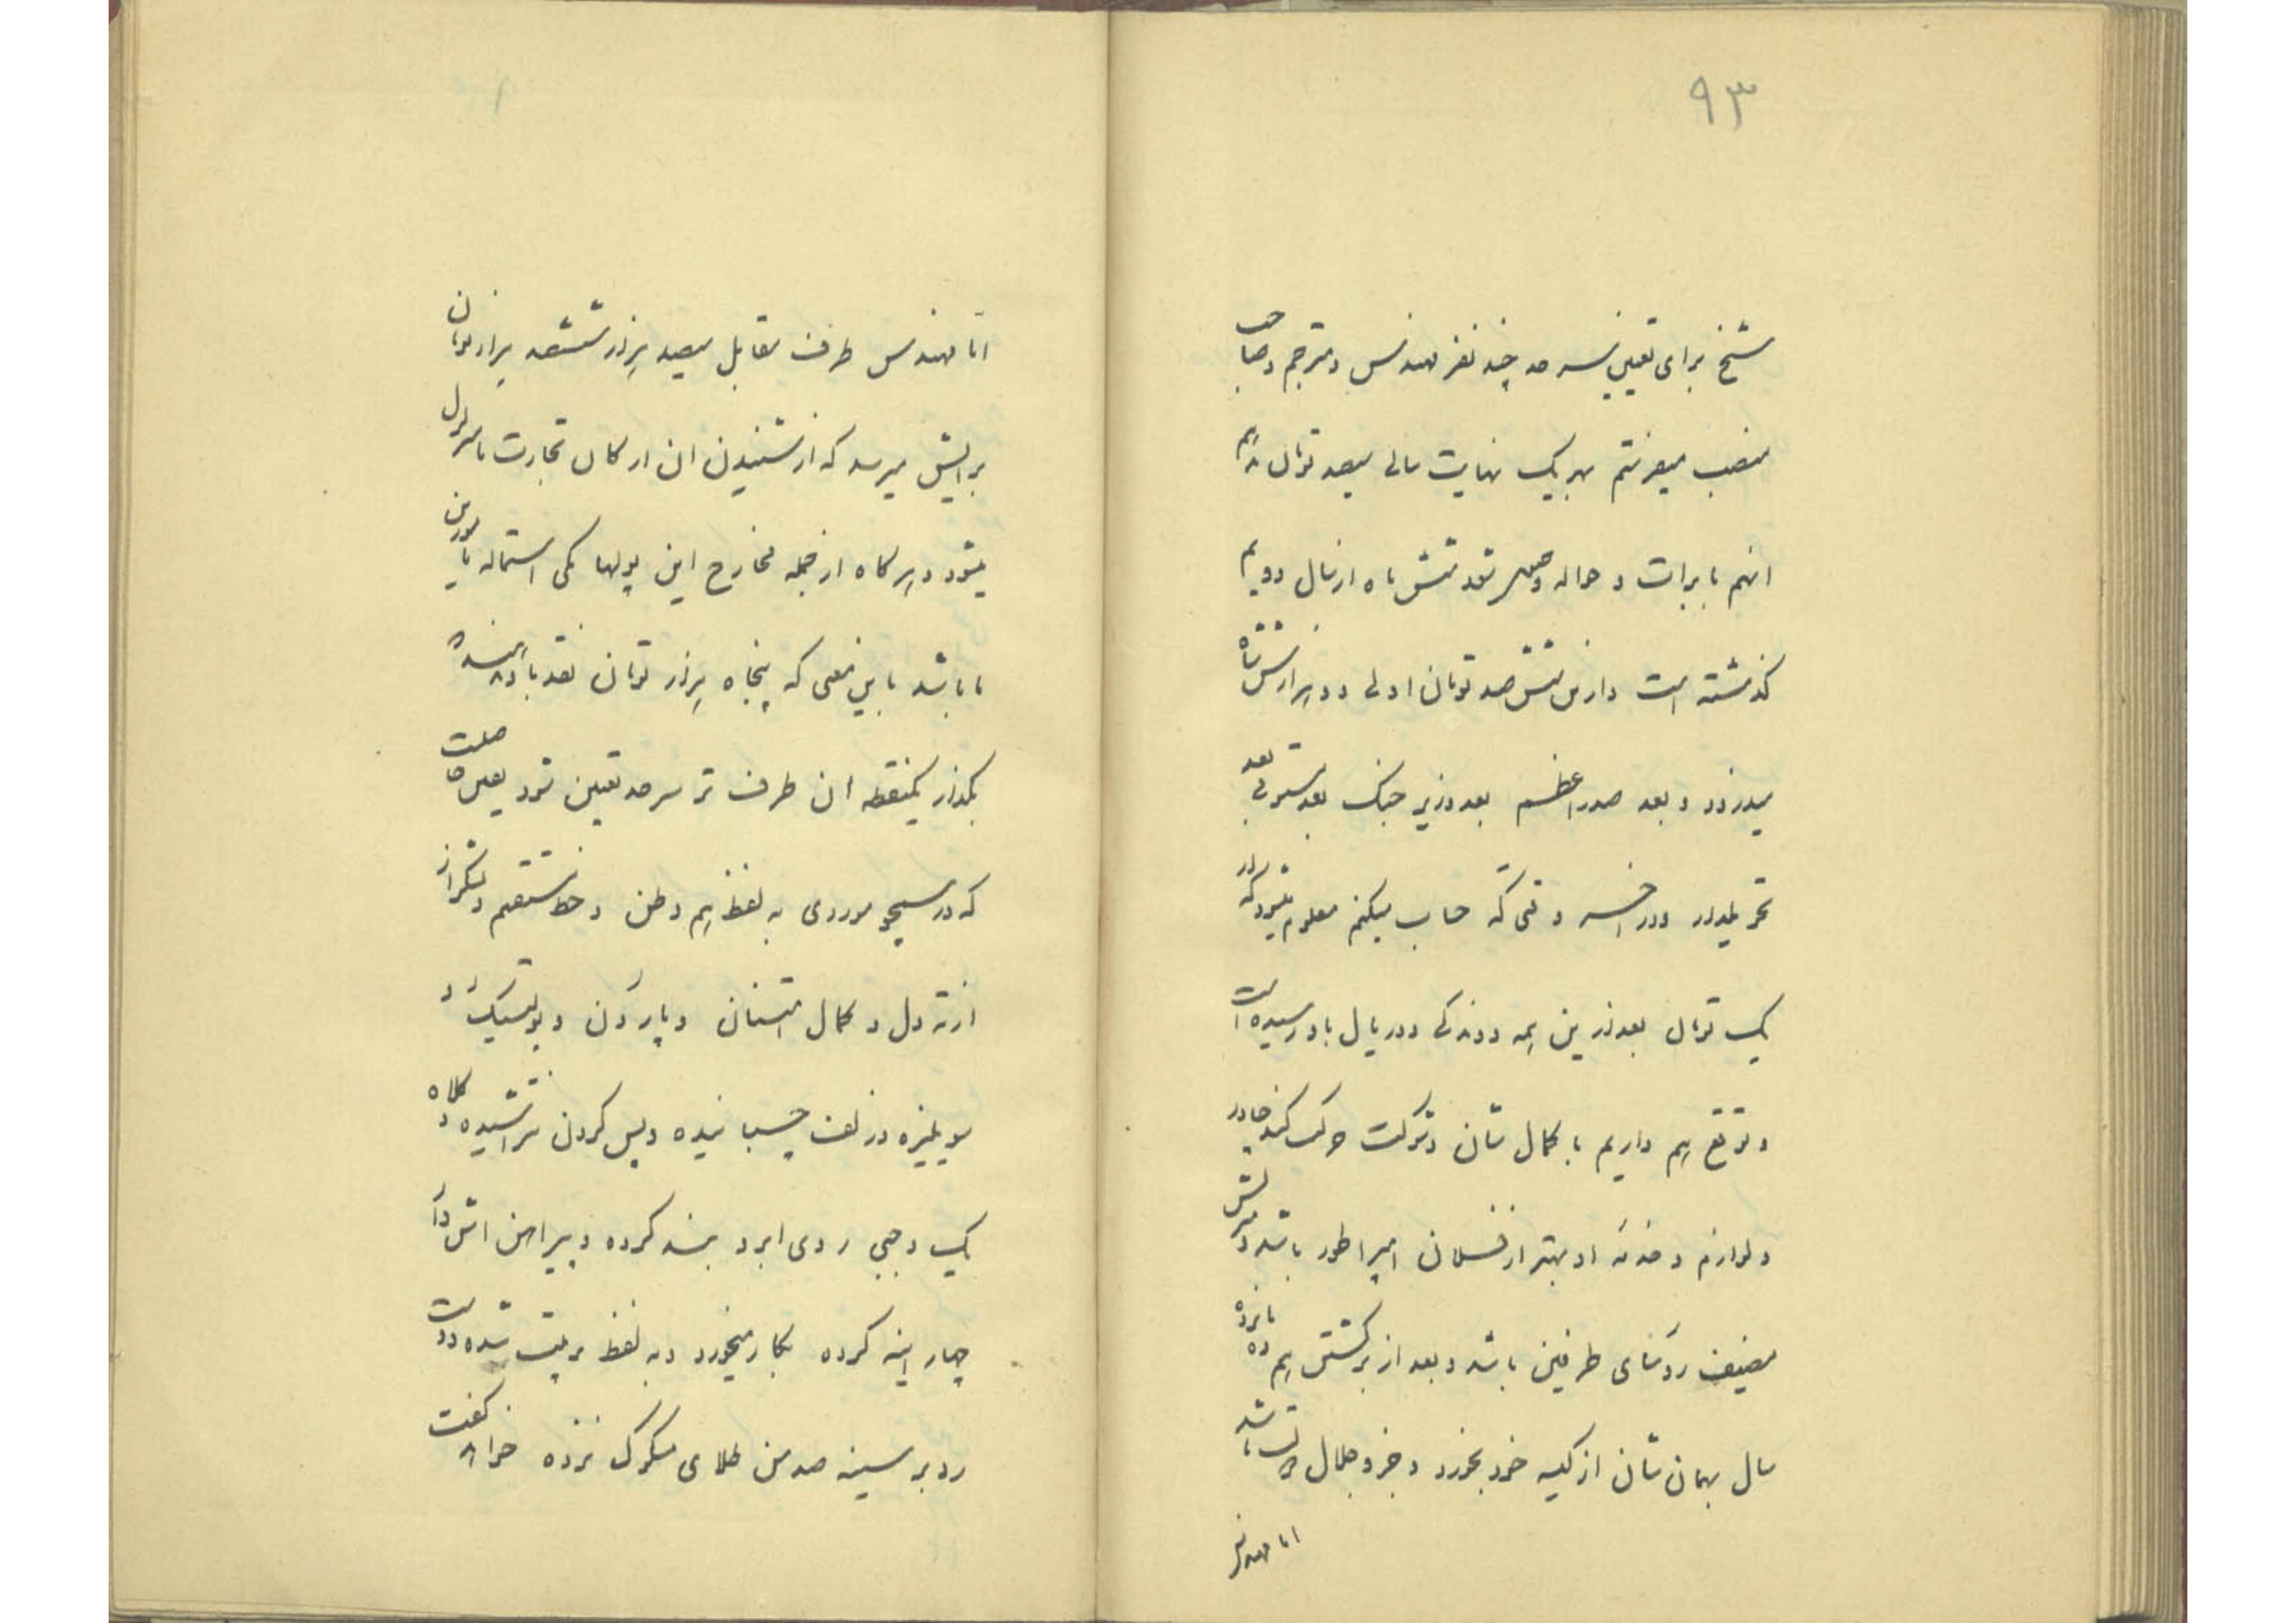 ۹۳
شیخ برای تعیین سرحد چند نفر مهندس و مترجم و صاحب
منصب میفرستم بهر یک نهایت سالی سیصد تومان
انهم با برات و حواله شش ماه از سال دویم
گذشته است و از من ششصد تومان اولی دو هزارش شاه
میدزدد و بعد صدراعظم بعد وزیر جنگ بعد مستوفی بعد
تحویلدار و در اخر وقتی که حساب میکنم معلوم میشود که از
یک تومان بعد از این همه دوندگی دو ریال باو رسیده است
و توقع هم داریم با کمال شان و شوکت حرکت کند چادر
و لوازم و خدمه او بهتر از امپراطور باشد
مضیف رؤسای طرفین باشد و بعد از برگشتن هم ده پانزده
سال بهمان شان از کیسه خود بخورد و جلال باشد
اما مهندس
اما مهندس طرف مقابل سیصد هزار ششصد هزار تومان
برایش میرسد که از شنیدن ان ارکان تجارت ما متزلزل
میشود و هر گاه از جمله مخارج این پولها یکی استماله مامورین
ما باشد باین معنی که پنجاه هزار تومان نقد باو
بگذار یکنقطه ان طرف تر سرحد تعیین شود
که در هیچ موردی به لفظ هم وطن و خط مستقیم و تشکر از
از ته دل و کمال امتنان و پاردن و پولتیک و
سویلیزه و زلف چسبانیده و پس گردن تراشیده و کلاه
یک وجبی روی ابرو بند کرده و پیراهن اش را
چهار اینه کرده بکار میخورد و به لفظ
رو بر سینه صد من طلای مسکوک نزده خواهد گفت